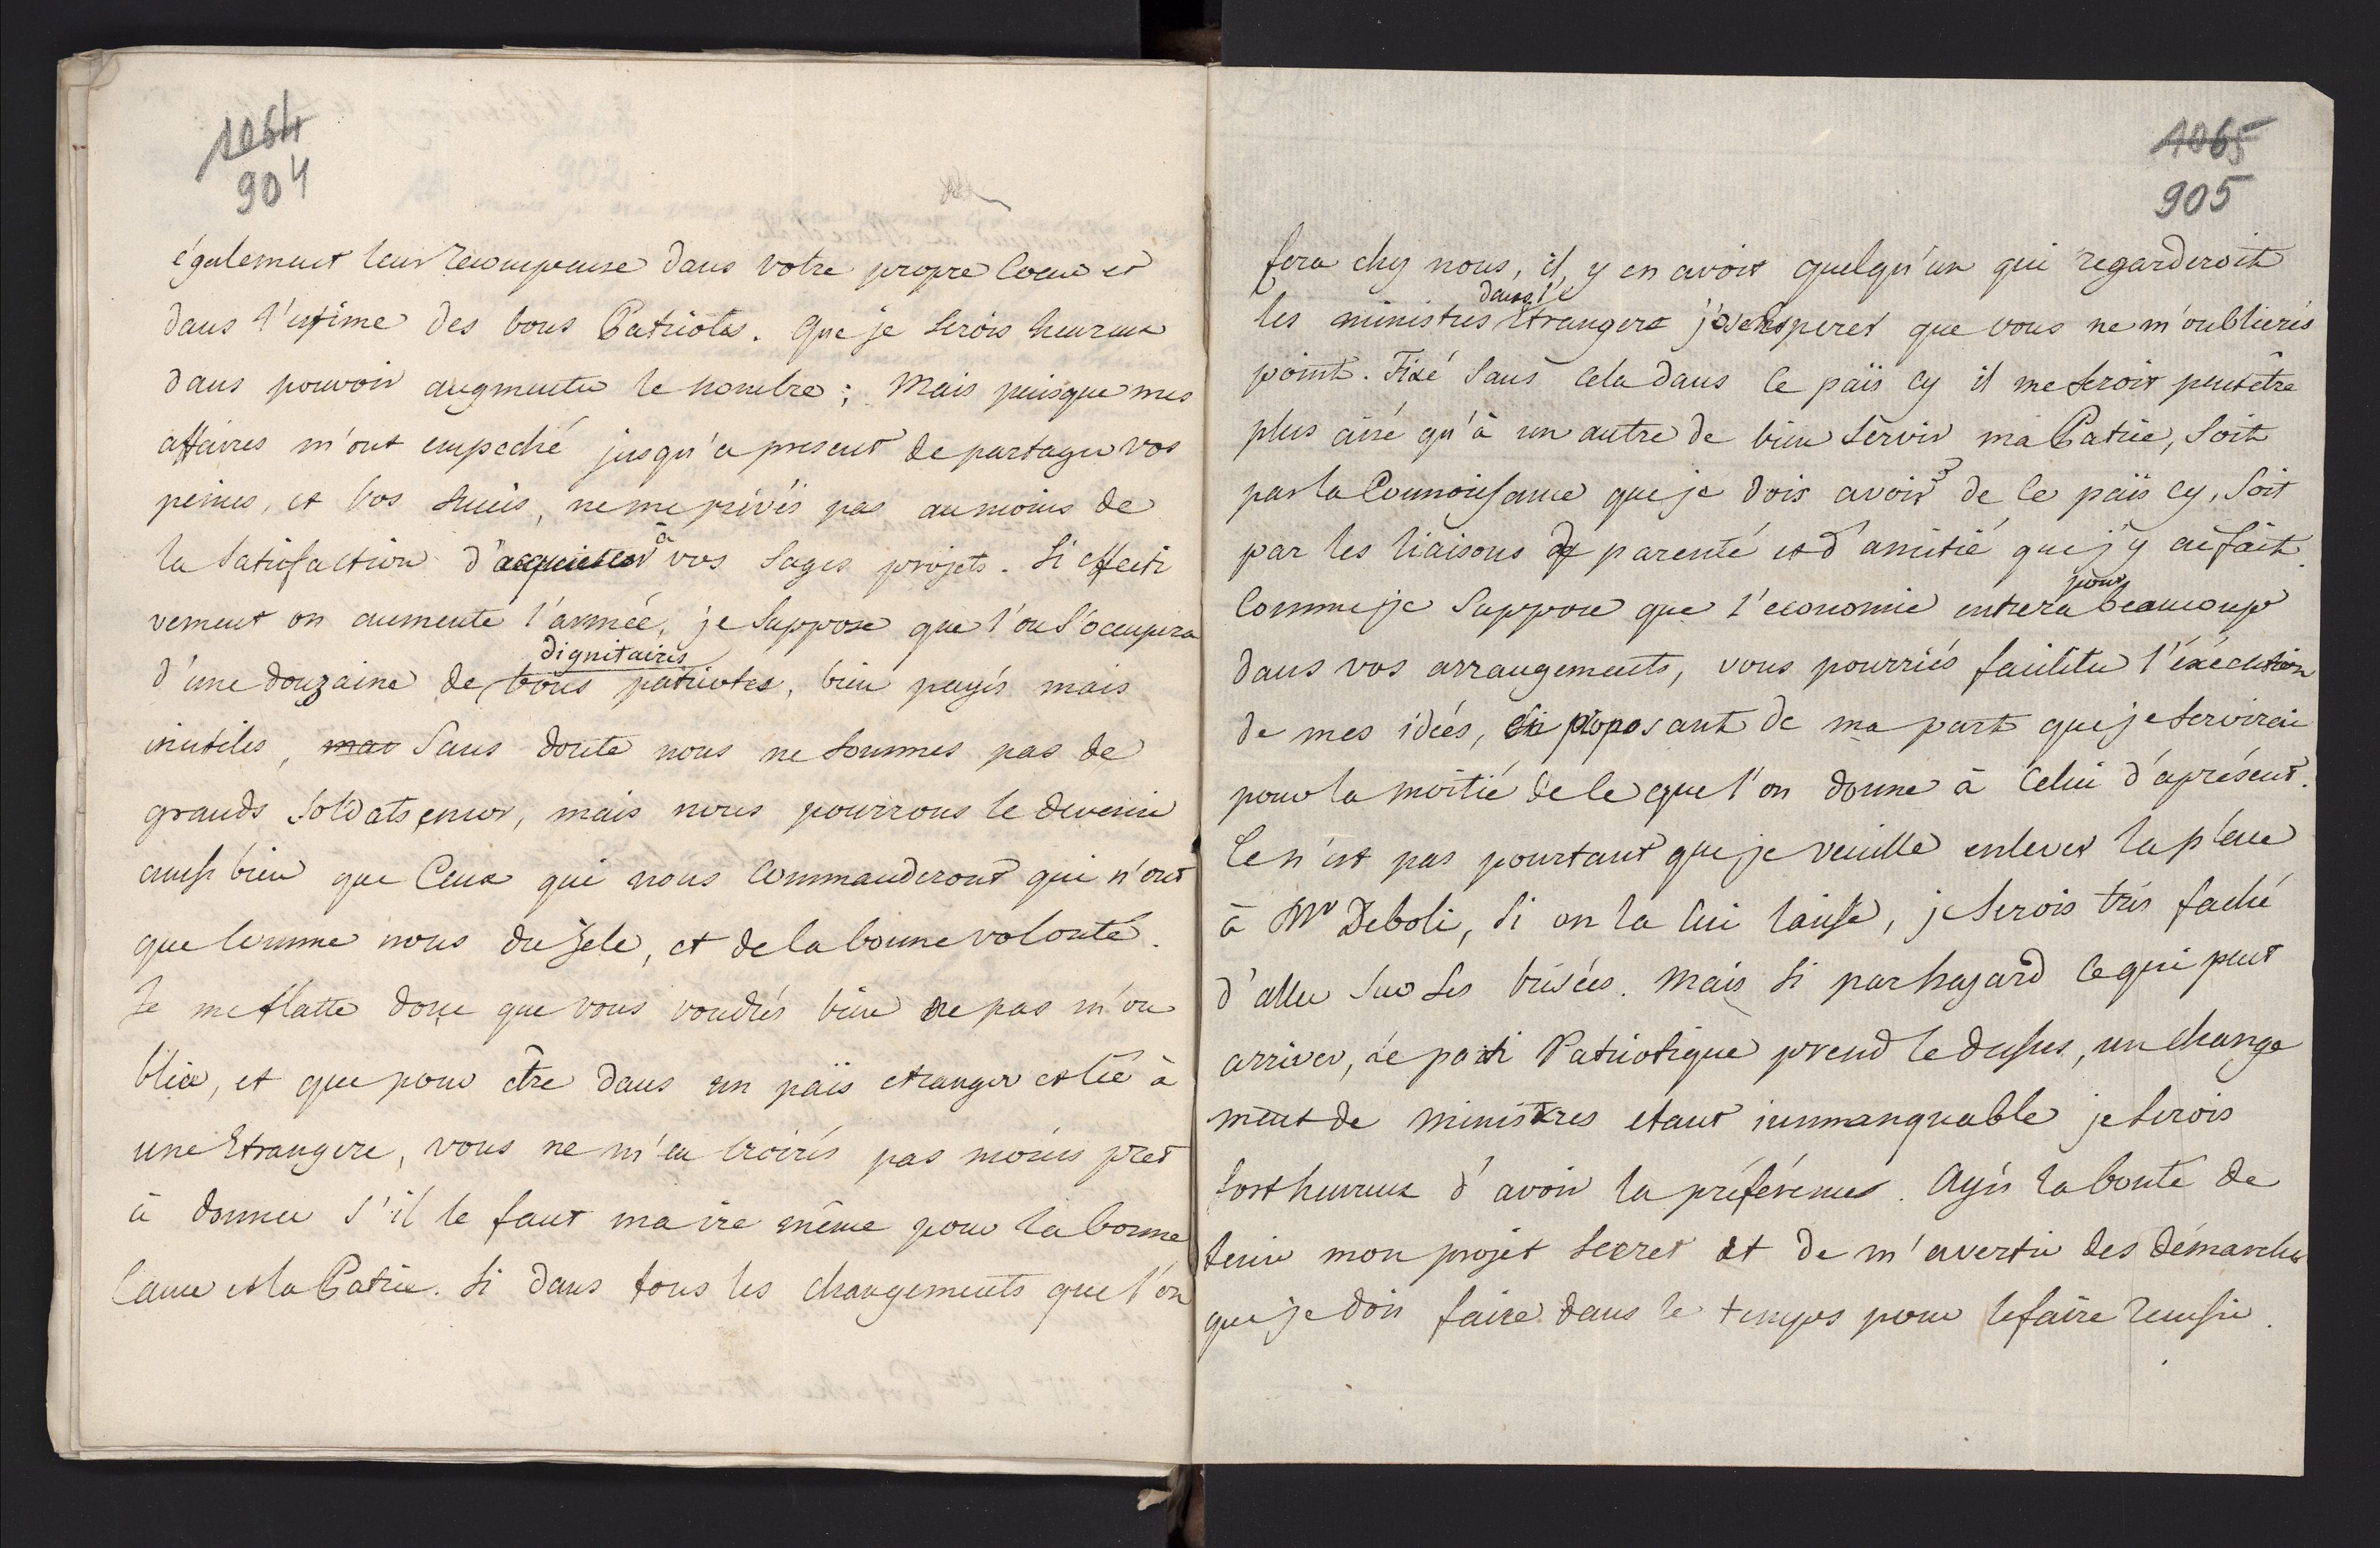 1064
904
également leur recompense dans votre propre Coeur et
dans l'estime des bons Patriotes. Que je serois heureux
dans pouvoir augmenter le nombre ; Mais puisque mes
affaires m'ont empeché jusqu'a present de partager vos
peines, et vos succès, ne me privés pas au moins de
la satisfaction d'acquiescer à vos sages projets. Si effecti
vement on aumente l'armée, je suppose que l'on s'occupera
dignitaires
d'une douzaine de bons patriotes, bien payés mais
inutiles, mar Sans doute nous ne sommes pas de
grands soldats encor, mais nous pourrons le devenir
aussi bien que Ceux qui nous Commanderont qui n'ont
que Comme nous du zele, et de la bonne volonté.
Je me flatte donc que vous voudrés bien ne pas m'ou
blier, et que pour être dans un païs etranger et lié à
une Etrangere, vous ne m'en croirés pas moins pret
à donner s'il le faut ma vie même pour la bonne
Cause et la Patrie. Si dans tous les changements que l'on
1065
905
fera chez nous, il y en avoit quelqu'un qui regarderoit
dans l'
les ministres Etrangers j'ose esperer que vous ne m'oublierés
point. Fixé sans cela dans ce païs cy il me seroit peutêtre
plus aisé qu'à un autre de bien servir ma Patrie, soit
par la Connoissance que je dois avoir de ce païs cy, soit
par les liaisons de parenté et d'amitié que j'y ai fait.
pour
Comme je suppose que l'economie entrera beaucoup
dans vos arrangements, vous pourriés faciliter l'éxécution
de mes idées, en proposant de ma part que je servirai
pour la moitié de ce que l'on donne à Celui d'aprésent.
Ce n'est pas pourtant que je veuille enlever la place
à Mr Deboli, si on la lui laisse, je serois très faché
d'aller sur ses brisées. Mais si par hazard ce qui peut
arriver, le parti Patriotique prend le dessus, un change
ment de ministres etant immanquable je serois
fort heureux d'avoir la préférence. Ayés la bonté de
tenir mon projet secret et de m'avertir des démarches
que je dois faire dans le temps pour le faire reussir.